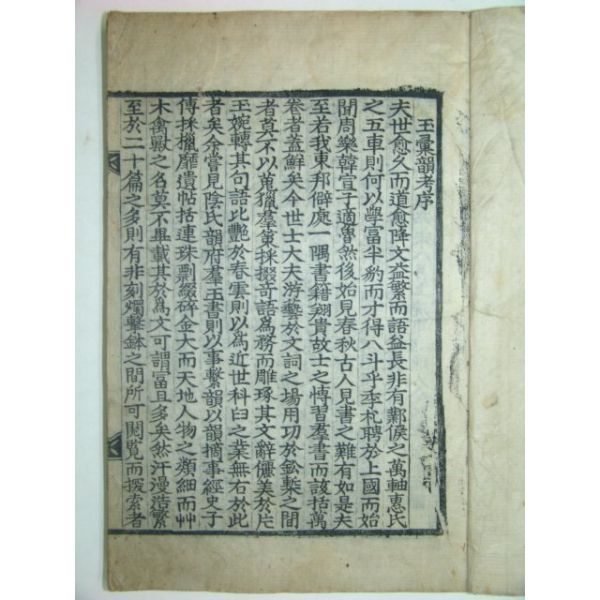 玉彙韻考序
夫世愈久而道愈降文益繁而語益長非有鄴侯之萬軸惠氏
之五車則何以學富半豹而才得八斗乎季札聘於上國而始
聞周樂韓宣子適魯然後始見春秋古人見書之難有如是夫
至若我東邦僻處一隅書籍翔貴故士之博習羣書而該括萬
卷者蓋鮮矣今世士大夫游藝於文詞之場用功於鉛槧之間
者莫不以蒐獵羣策採掇奇語爲務而雕琢其文辭儷美於片
玉婉轉其句語比艶於春雲則以爲近世科臼之業無右於此
者矣余嘗見陰氏韻府羣玉書則以事繫韻以韻摘事經史子
傳採獵靡遺帖括連珠剽綴碎金大而天地人物之類細而艸
木禽獸之名莫不畢載其於爲文可謂富且多矣然汗漫浩繁
至於二十篇之多則有非刻燭擊鉢之間所可閱覧而搜索者